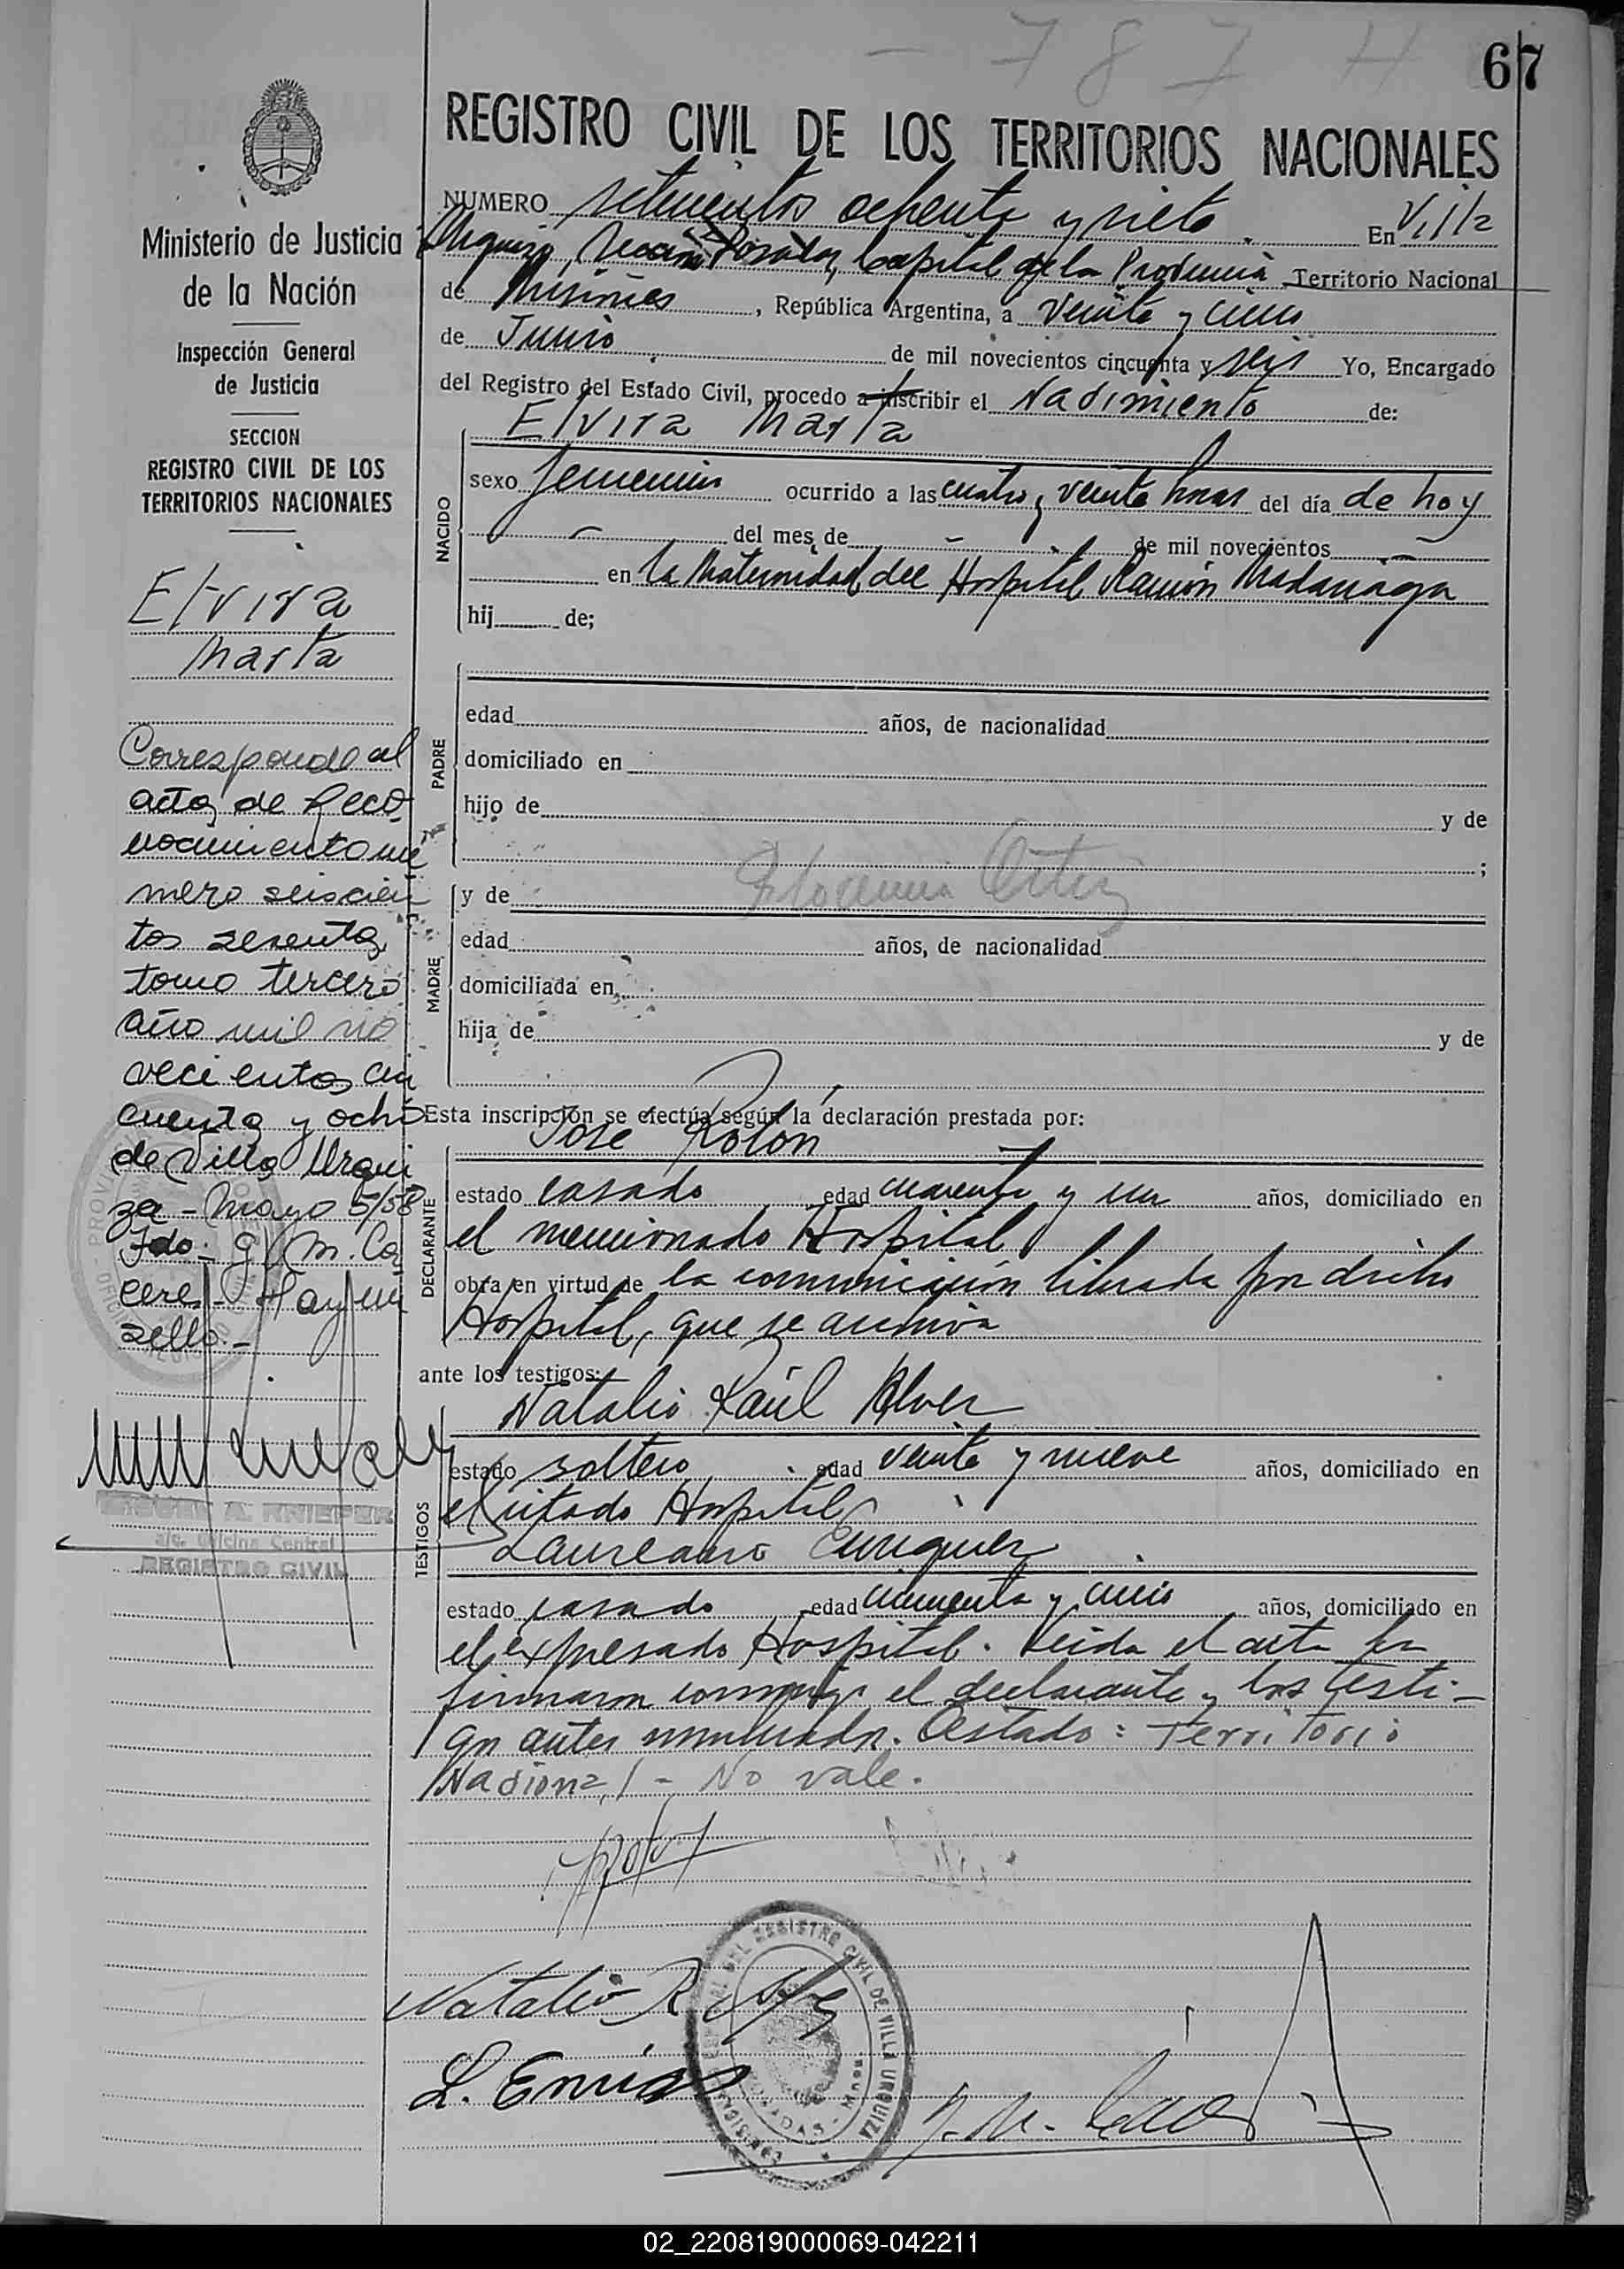 - 787 H
67
REGISTRO CIVIL DE LOS TERRITORIOS NACIONALES
NUMERO setecientos ochenta y siete. En Villa
Urquiza, Sección Posadas, Capital de la Provincia Territorio Nacional
de Misiones, República Argentina, a veinte y cinco
de Junio de mil novecientos cincuenta y seis Yo, Encargado
del Registro del Estado Civil, procedo a inscribir el Nacimiento de:
Ministerio de Justicia
de la Nación
Inspección General
de Justicia
SECCION
REGISTRO CIVIL DE LOS
TERRITORIOS NACIONALES
Elvira
Marta
Corresponde al
acta de Reco
nocimiento nú
mero seiscien
tos sesenta
tomo tercero
año mil no
vecientos cin
cuenta y ocho
de Villa Urqui
za - Mayo 5/58
Fdo: G. M. Cá
ceres - Hay un
sello.-
MIGUEL A. KNIEPER
a/c. Oficina Central
REGISTRO CIVIL
NACIDO
Elvira Marta
sexo femenino ocurrido a las cuatro y veinte horas del día de hoy
- del mes de - de mil novecientos -
en la Maternidad del Hospital Ramón Madariaga
hij de;
PADRE
edad años, de nacionalidad
domiciliado en
hijo de y de
;
MADRE
y de Florencia Ortiz
edad años, de nacionalidad
domiciliada en
hija de y de
Esta inscripción se efectúa según la declaración prestada por:
DECLARANTE
José Rolón
estado casado edad cuarenta y un años, domiciliado en
el mencionado Hospital
obra en virtud de la comunicación librada por dicho
Hospital, que se archiva
ante los testigos:
TESTIGOS
Natalio Raúl Alvez
estado soltero edad veinte y nueve años, domiciliado en
el citado Hospital
Laureano Enriquez
estado casado edad cincuenta y cinco años, domiciliado en
el expresado Hospital. Leida el acta la
firmaron conmigo el declarante y los testi-
gos antes nombrados. Testado: Territorio
Nacional - No vale.
Natalio R
L. Enriq
REGISTRO CIVIL DE VILLA URQUIZA
POSADAS - Mnes
02_220819000069-042211